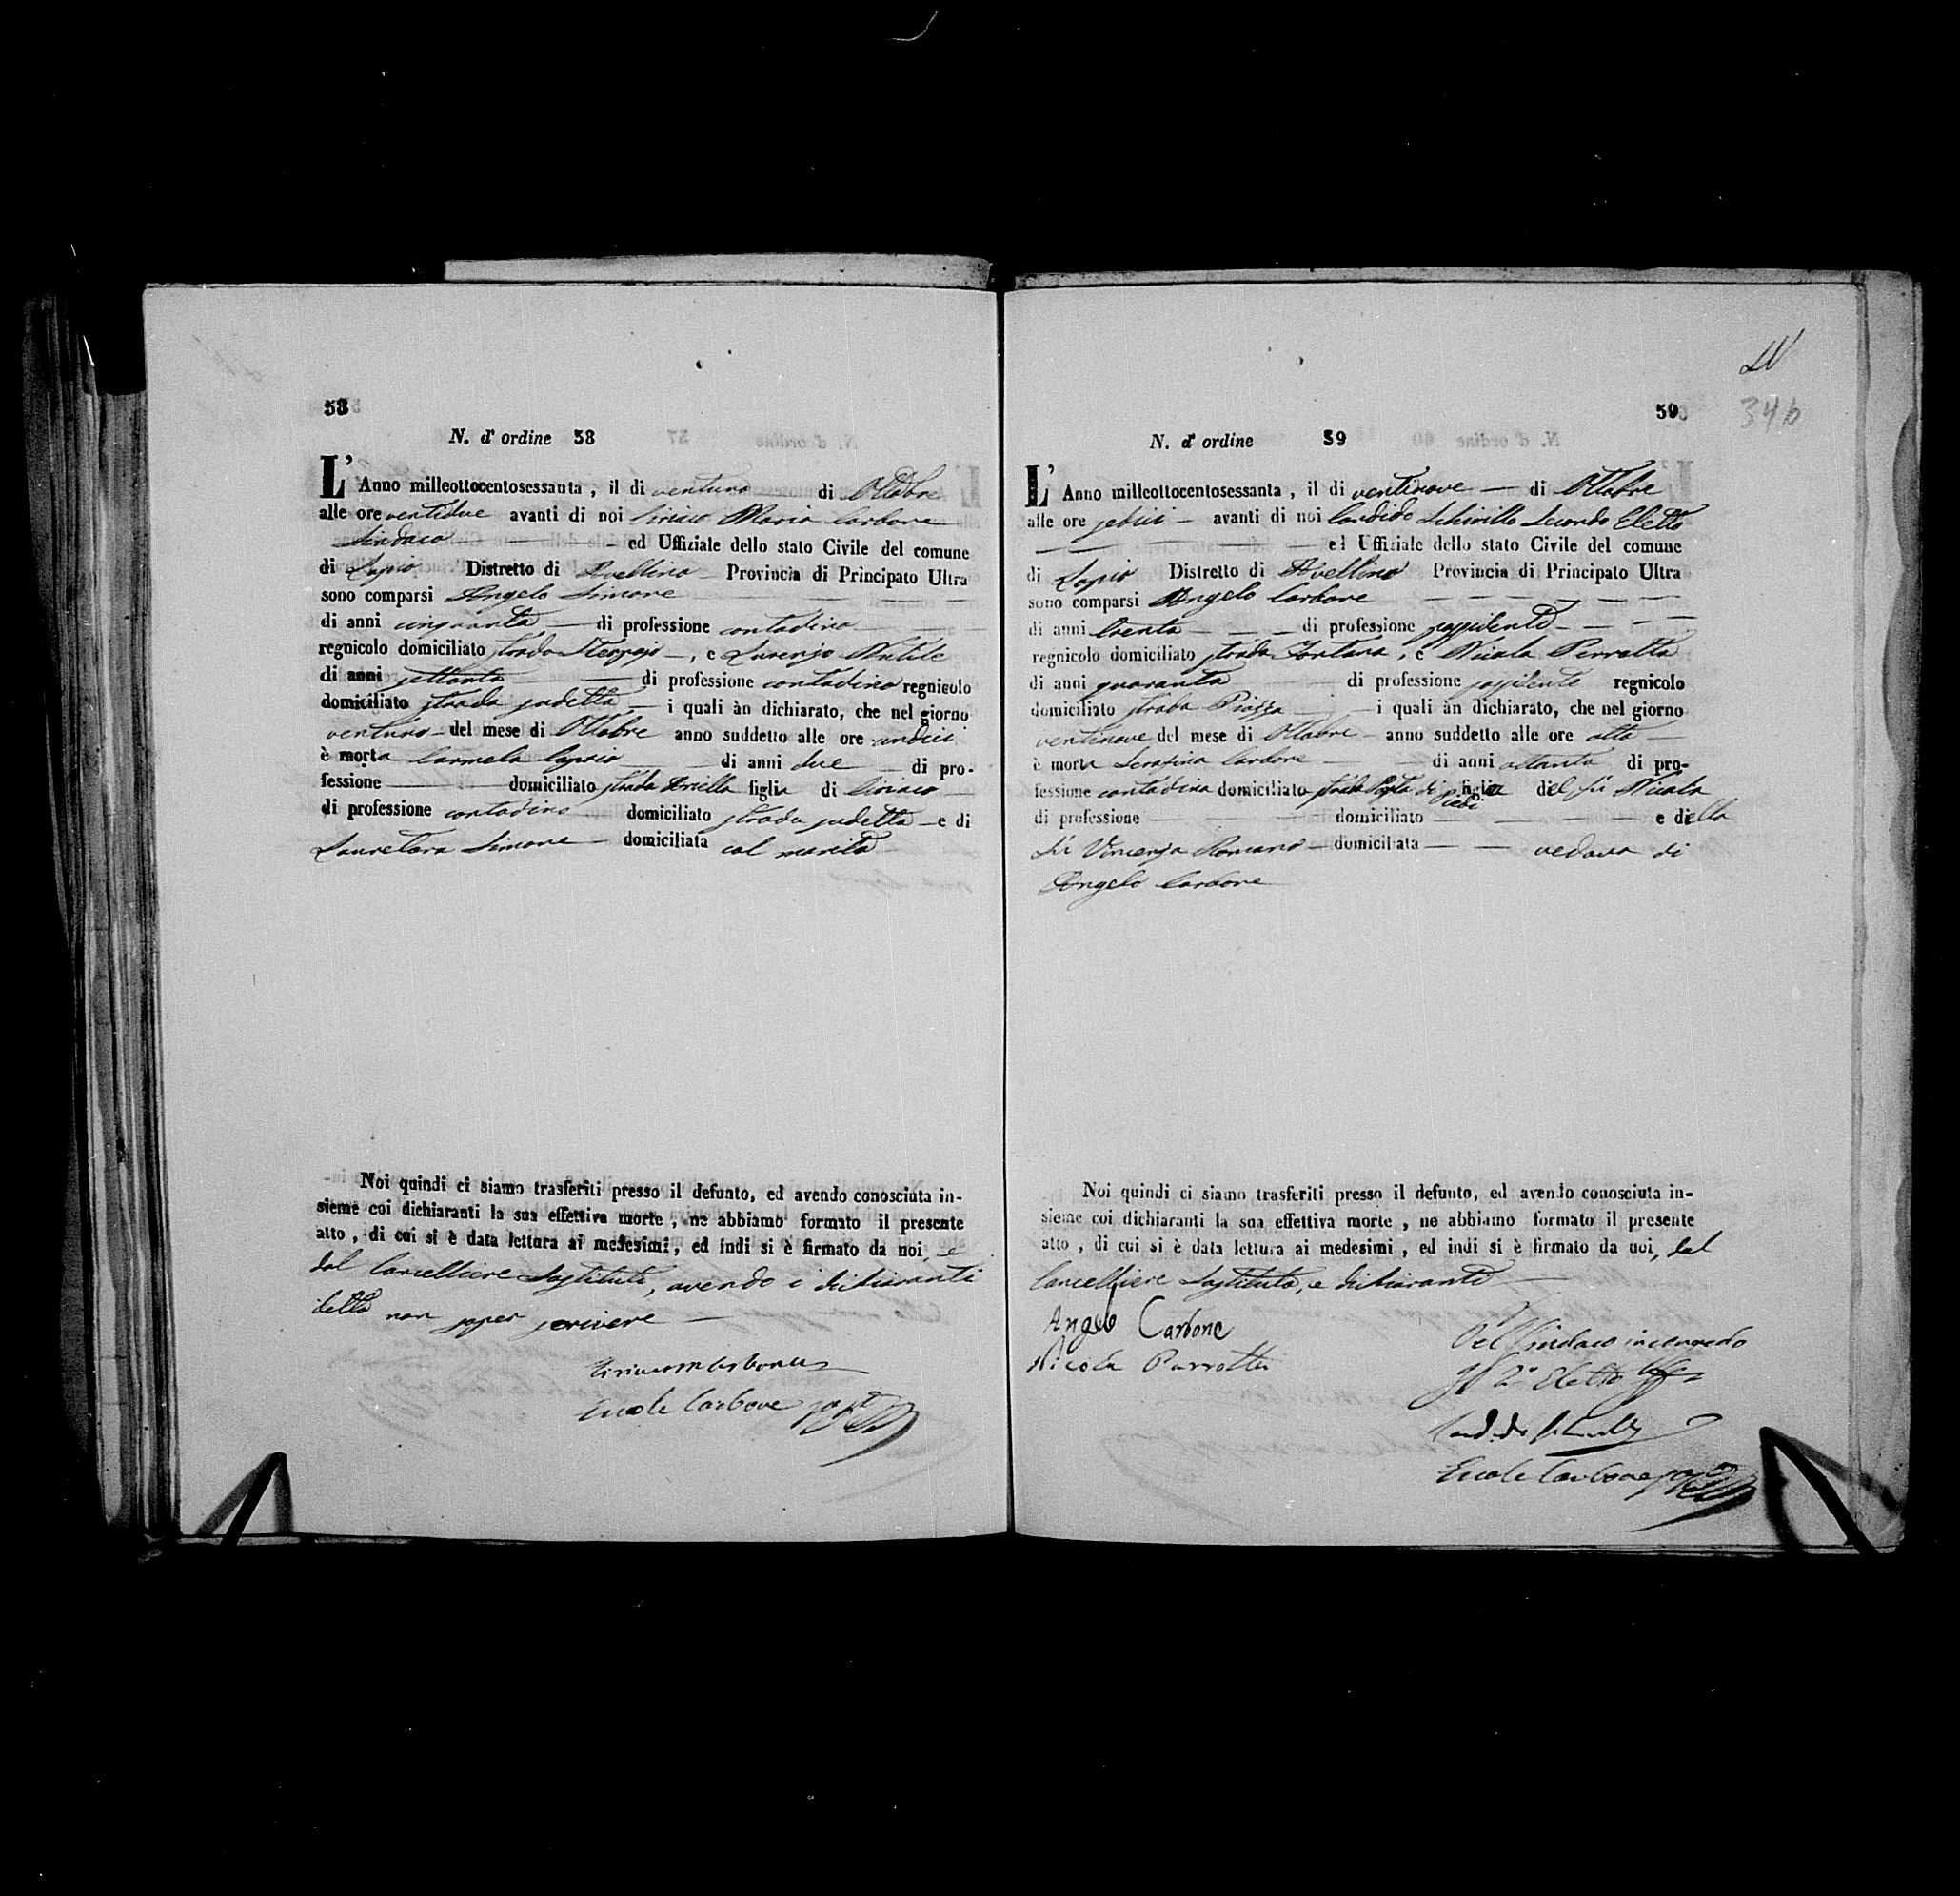 58
N. d' ordine 58
L'Anno milleottocentosessanta, il di ventuno di Ottobre
alle ore ventidue avanti di noi Ciriaco Maria Carbone
Sindaco ed Uffiziale dello stato Civile del comune
di Lapio Distretto di Avellino Provincia di Principato Ultra
sono comparsi Angelo Simone
di anni cinquanta di professione contadino
regnicolo domiciliato strada , e Lorenzo
di anni settanta di professione contadino regnicolo
domiciliato strada sudetta i quali àn dichiarato, che nel giorno
ventuno del mese di Ottobre anno suddetto alle ore undici
è morta Carmela di anni due di pro-
fessione domiciliato strada figlia di Ciriaco
di professione contadino domiciliato strada sudetta e di
Lauretana Simone domiciliata col marito
Noi quindi ci siamo trasferiti presso il defunto, ed avendo conosciuta in-
sieme coi dichiaranti la sua effettiva morte, ne abbiamo formato il presente
atto, di cui si è data lettura ai medesimi, ed indi si è firmato da noi, e
dal Cancelliere Sostituto, avendo i dichiaranti
detto non saper scrivere
Ciriaco M Carbone
Ercole Carbone sost
LIV
59
346
N. d' ordine 59
L'Anno milleottocentosessanta, il di ventinove di Ottobre
alle ore sedici avanti di noi Candido Schirillo Secondo Eletto
ed Uffiziale dello stato Civile del comune
di Lapio Distretto di Avellino Provincia di Principato Ultra
sono comparsi Angelo Carbone
di anni trenta di professione possidente
regnicolo domiciliato strada Fontana, e Nicola Perrotta
di anni quaranta di professione possidente regnicolo
domiciliato strada Piazza i quali àn dichiarato, che nel giorno
ventinove del mese di Ottobre anno suddetto alle ore otto
è morta Serafina Carbone di anni ottanta di pro-
fessione contadina domiciliato strada Porta di piedi figlia del fù Nicola
di professione domiciliato e della
fù Vincenza Romano domiciliata vedova di
Angelo Carbone
Noi quindi ci siamo trasferiti presso il defunto, ed avendo conosciuta in-
sieme coi dichiaranti la sua effettiva morte, ne abbiamo formato il presente
atto, di cui si è data lettura ai medesimi, ed indi si è firmato da noi, dal
Cancelliere Sostituto, e dichiaranti
Angelo Carbone
Nicola Parrotta
Pel Sindaco incomodo
Il 2° Eletto
Candido Schirillo
Ercole Carbone sost